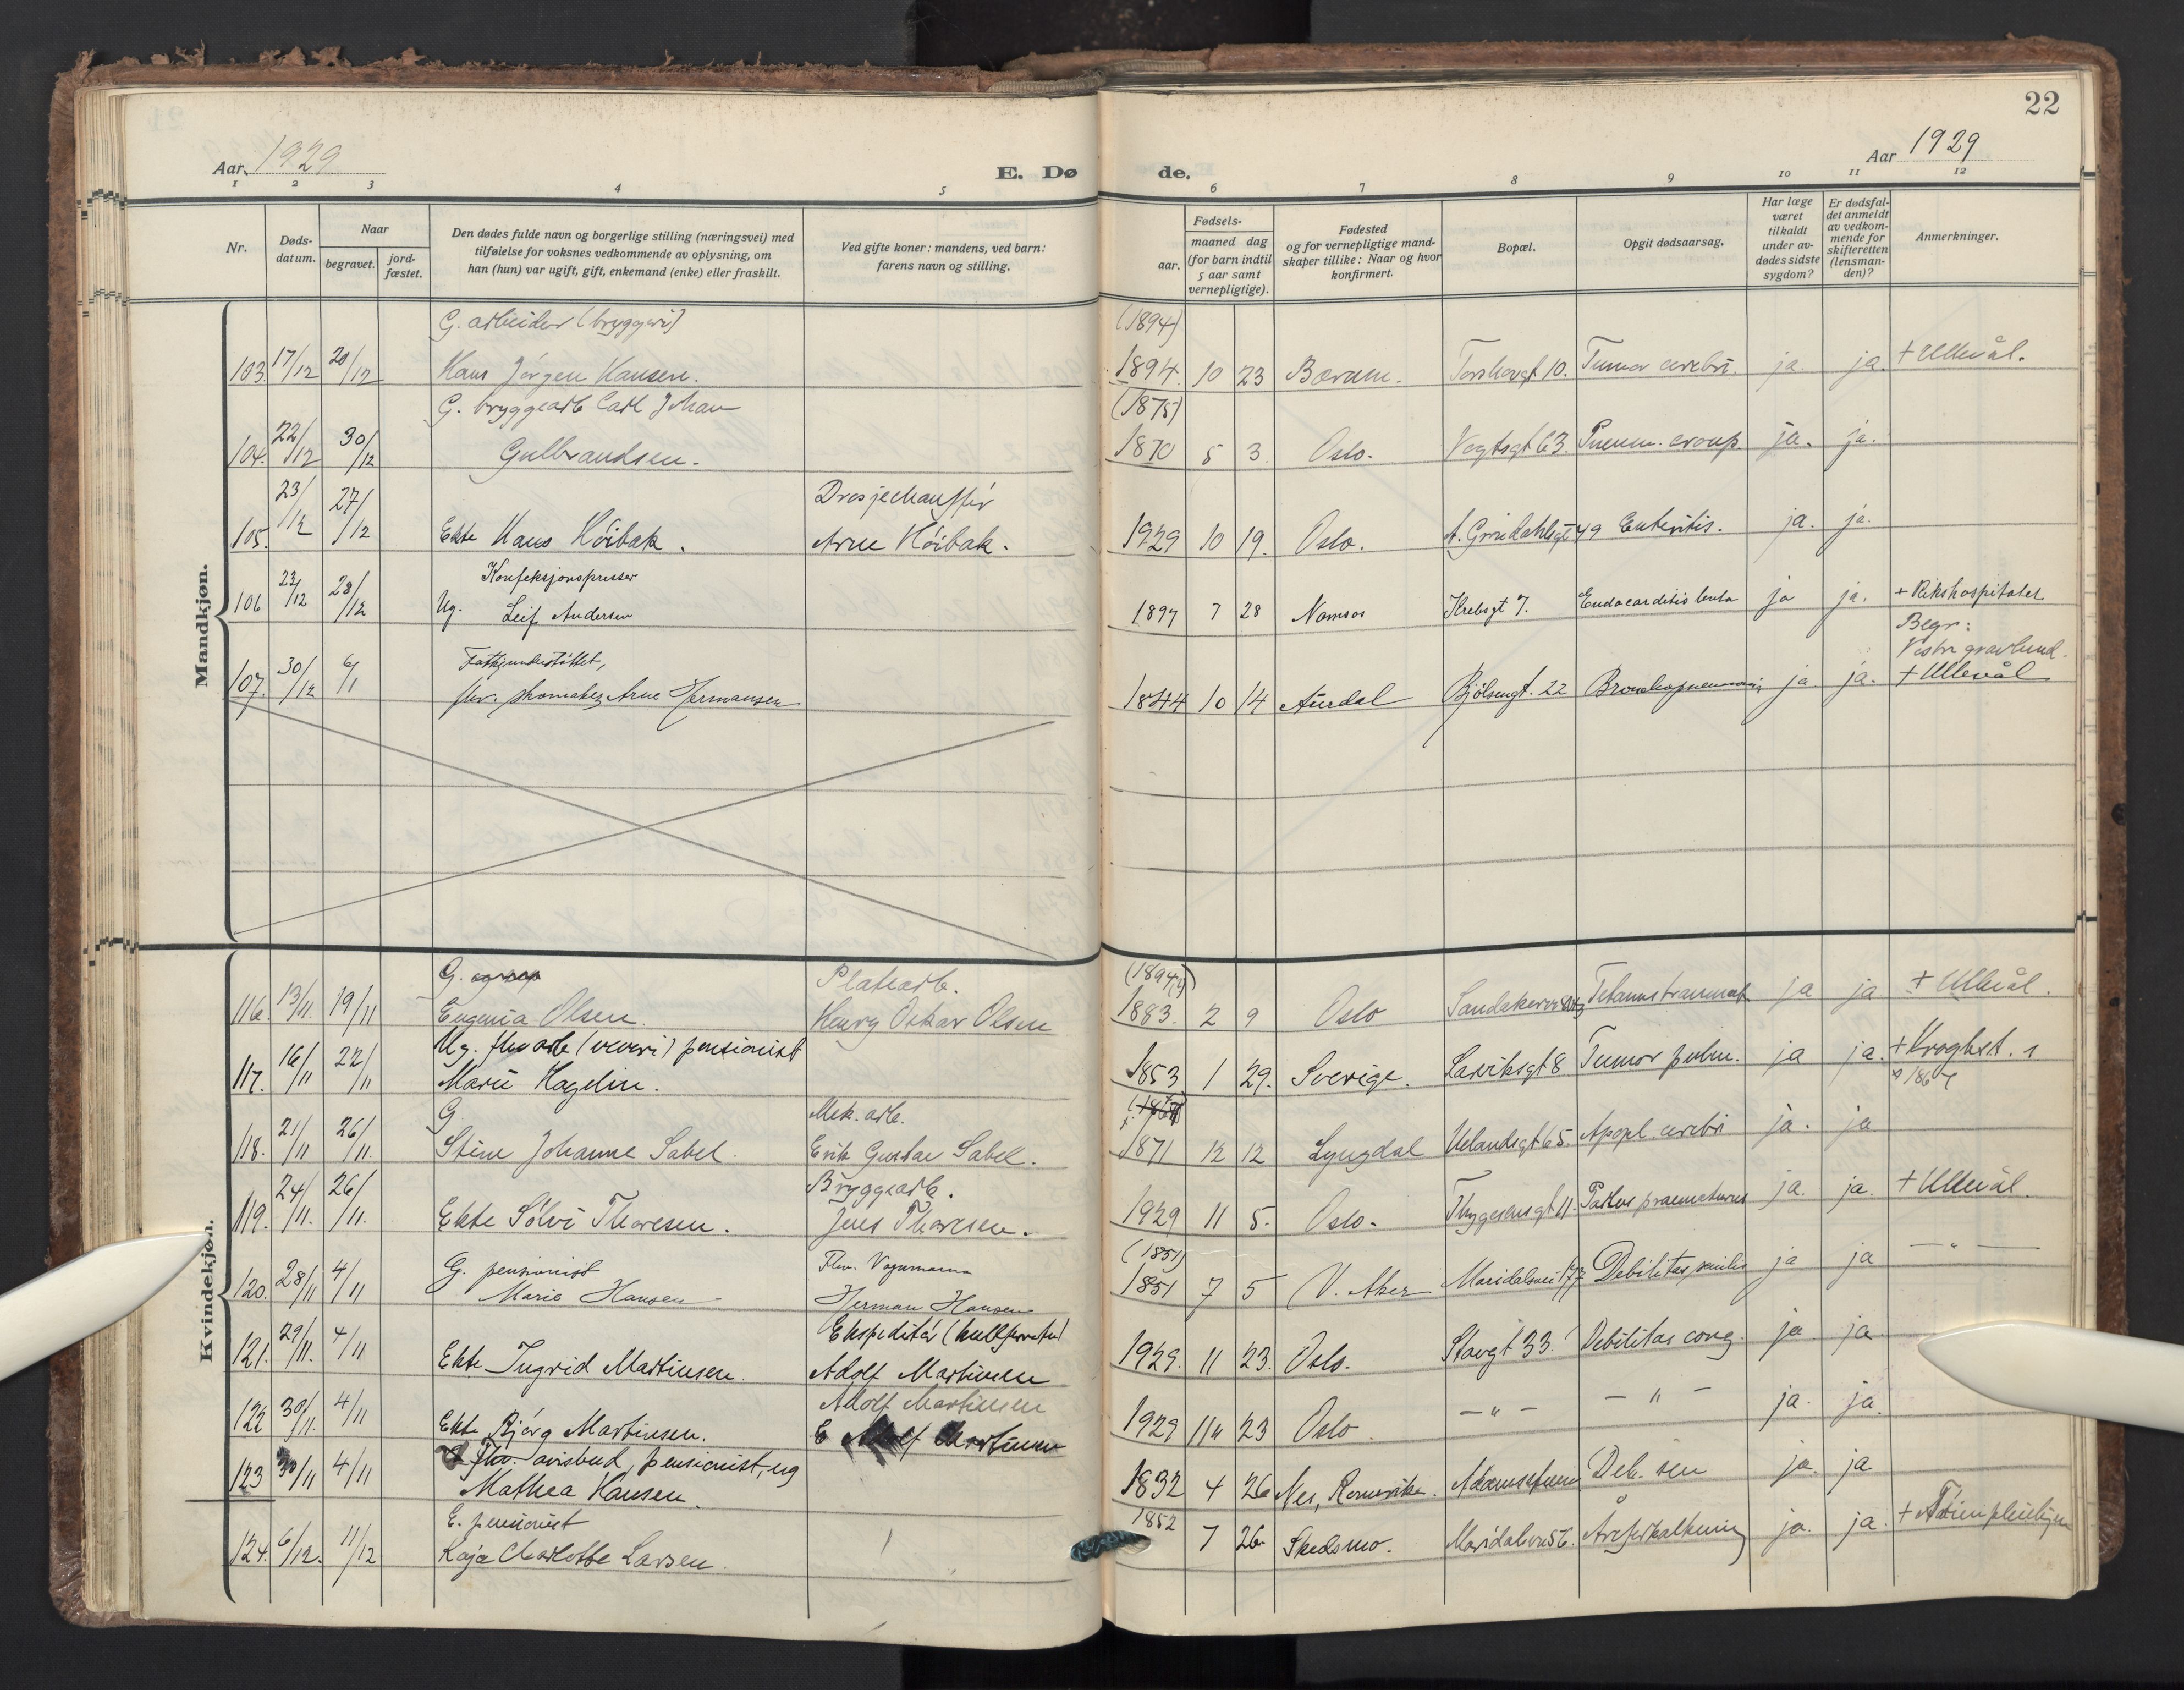 22
Aar. 1929
E. Dø de.
Aar 1929
1 2 3 4 5 6 7 8 9 10 11 12
Nr.
Døds-
datum.
Naar
begravet.
jord-
fæstet.
Den dødes fulde navn og borgerlige stilling (næringsvei) med
tilføielse for voksnes vedkommende av oplysning, om
han (hun) var ugift, gift, enkemand (enke) eller fraskilt.
Ved gifte koner: mandens, ved barn:
farens navn og stilling.
Fødsels-
aar.
maaned dag
(for barn indtil
5 aar samt
vernepligtige).
Fødested
og for vernepligtige mand-
skaper tillike: Naar og hvor
konfirmert.
Bopæl.
Opgit dødsaarsag.
Har læge
været
tilkaldt
under av-
dødes sidste
sygdom?
Er dødsfal-
det anmeldt
av vedkom-
mende for
skifteretten
(lensman-
den)?
Anmerkninger.
Mandkjøn.
G. arbeider (bryggeri) (1894)
103. 17/12 20/12 Hans Jørgen Hansen. 1894. 10 23 Bærum. Torshovgt 10. Tumor cerebri. ja. ja. + Ullevål.
G. bryggearb Carl Johan (1875)
104. 22/12 30/12 Gulbrandsen. 1870 5 3. Oslo. Vogtsgt 63. Pneum. croup. ja. ja.
Drosjechauffør
105. 23/12 27/12 Ekte Hans Höibak. Arne Höibak. 1929 10 19. Oslo. 49 Enteritis. ja. ja.
Konfeksjonspresser
106 23/12 28/12 Ug. Leif Andersen 1897 7 28 Namsos Krebsgt 7. Endocarditis lenta ja ja. + Rikshospitalet
Begr:
Vestre gravlund.
107. 30/12 6/1 Fattigunderstøttet,
fhv. skomaker Arne Hermansen 1844 10 14 Aurdal Bjølsengt. 22 Bronchopneumoni ja. ja. + Ullevål
Kvindekjøn.
G. Platearb. (1894)
116. 13/11. 19/11 Eugenia Olsen. Henry Oskar Olsen 1883. 2 9 Oslo Tetanus traumat. ja ja + Ullevål.
Ug. fhv arb (veveri) pensionist
117. 16/11 22/11 Marie Hagelin. 1853 1 29. Sverige. Larviksgt 8. Tumor pulm. ja ja. + Kroghst. 1
G Mek. arb.
118. 21/11 26/11. Stine Johanne Sabel. Erik Gustav Sabel. 1871 12 12 Lyngdal Uelandsgt 65. Apopl. cerebri ja. ja
Bryggearb.
119. 24/11. 26/11. Ekte Sölvi Thoresen. Jens Thoresen. 1929 11 5. Oslo. Thygesensgt 11. Partus praematurus ja. ja. + Ullevål.
G. pensionist Fhv. Vognmann (1851)
120. 28/11 4/11 Marie Hansen Herman Hansen 1851 7 5 V. Aker Maridalsvei 177 Debilitas senilis ja ja — " —
Ekspeditör
121. 29/11. 4/11 Ekte Ingrid Martinsen. Adolf Martinsen 1929. 11 23. Oslo. Stavgt 33. Debilitas cong. ja ja
Adolf Martinsen
122 30/11. 4/11 Ekte Bjørg Martinsen. 1929 11 23 Oslo — " — — " — ja. ja.
Fhv. avisbud, pensionist, ug
123 30/11 4/11 Mathea Hansen. 1832 4 26 Nes, Romerike. Deb. sen ja. ja
E. pensionist 1852
124. 6/12. 11/12 Kaja Charlotte Larsen. 7 26 Skedsmo. Maridalsv 56. Åreforkalkning ja. ja.